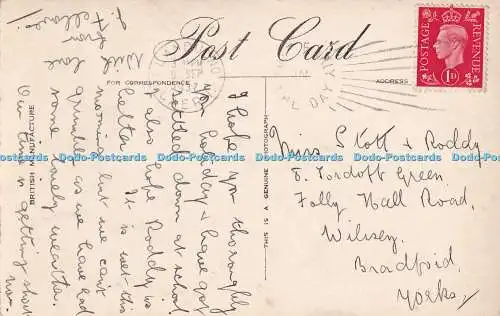 Post Card
FOR CORRESPONDENCE
ADDRESS
POSTAGE
REVENUE
1D
THIS IS A GENUINE PHOTOGRAPH
BRITISH MANUFACTURE
Dodo-Postcards Dodo-Postcards Dodo-Postcards Dodo-Postcards Dodo-Postcards
I hope you thoroughly
you holiday & have got
settled down at school
I also hope Roddy is
better. It is wet this
morning but we can't
grumble as we have had
some lovely weather.
Our time is getting short
now.
With love
from
Miss S Kott & Roddy
8. Tordoff Green
Folly Hall Road,
Wibsey,
Bradford,
Yorks